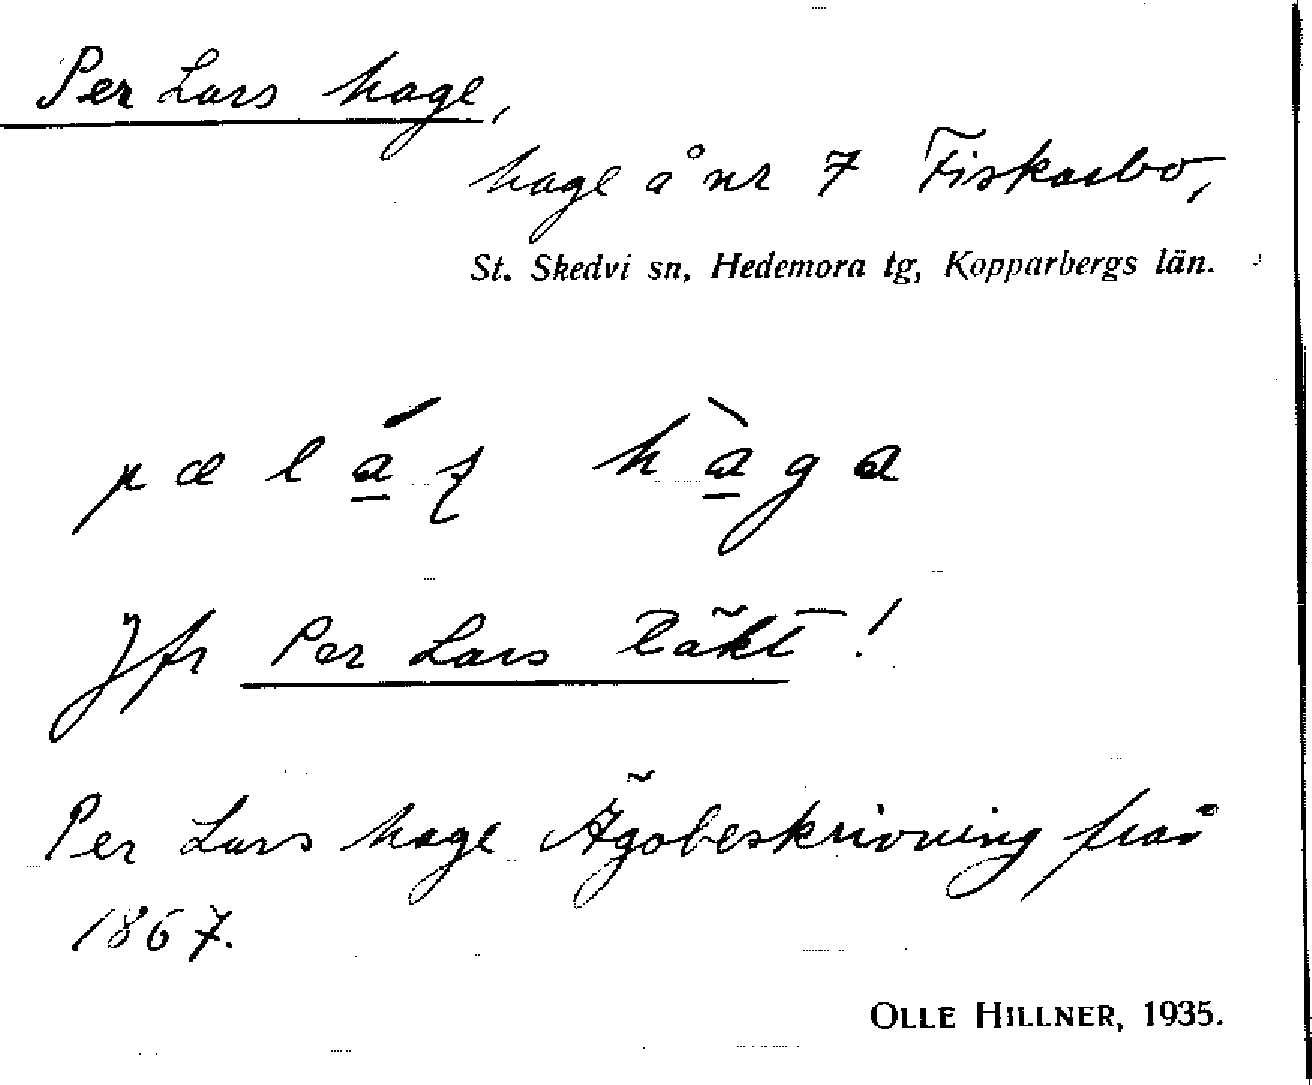 Per Lars hage,
hage å nr 7 Fiskarbo,
St. Skedvi sn, Hedemora tg, Kopparbergs län.
pæ l á̱ z h à̱ g a
Jfr Per Lars täkt!
Per Lars hage Ägobeskrivning frå
1867.
OLLE HILLNER, 1935.